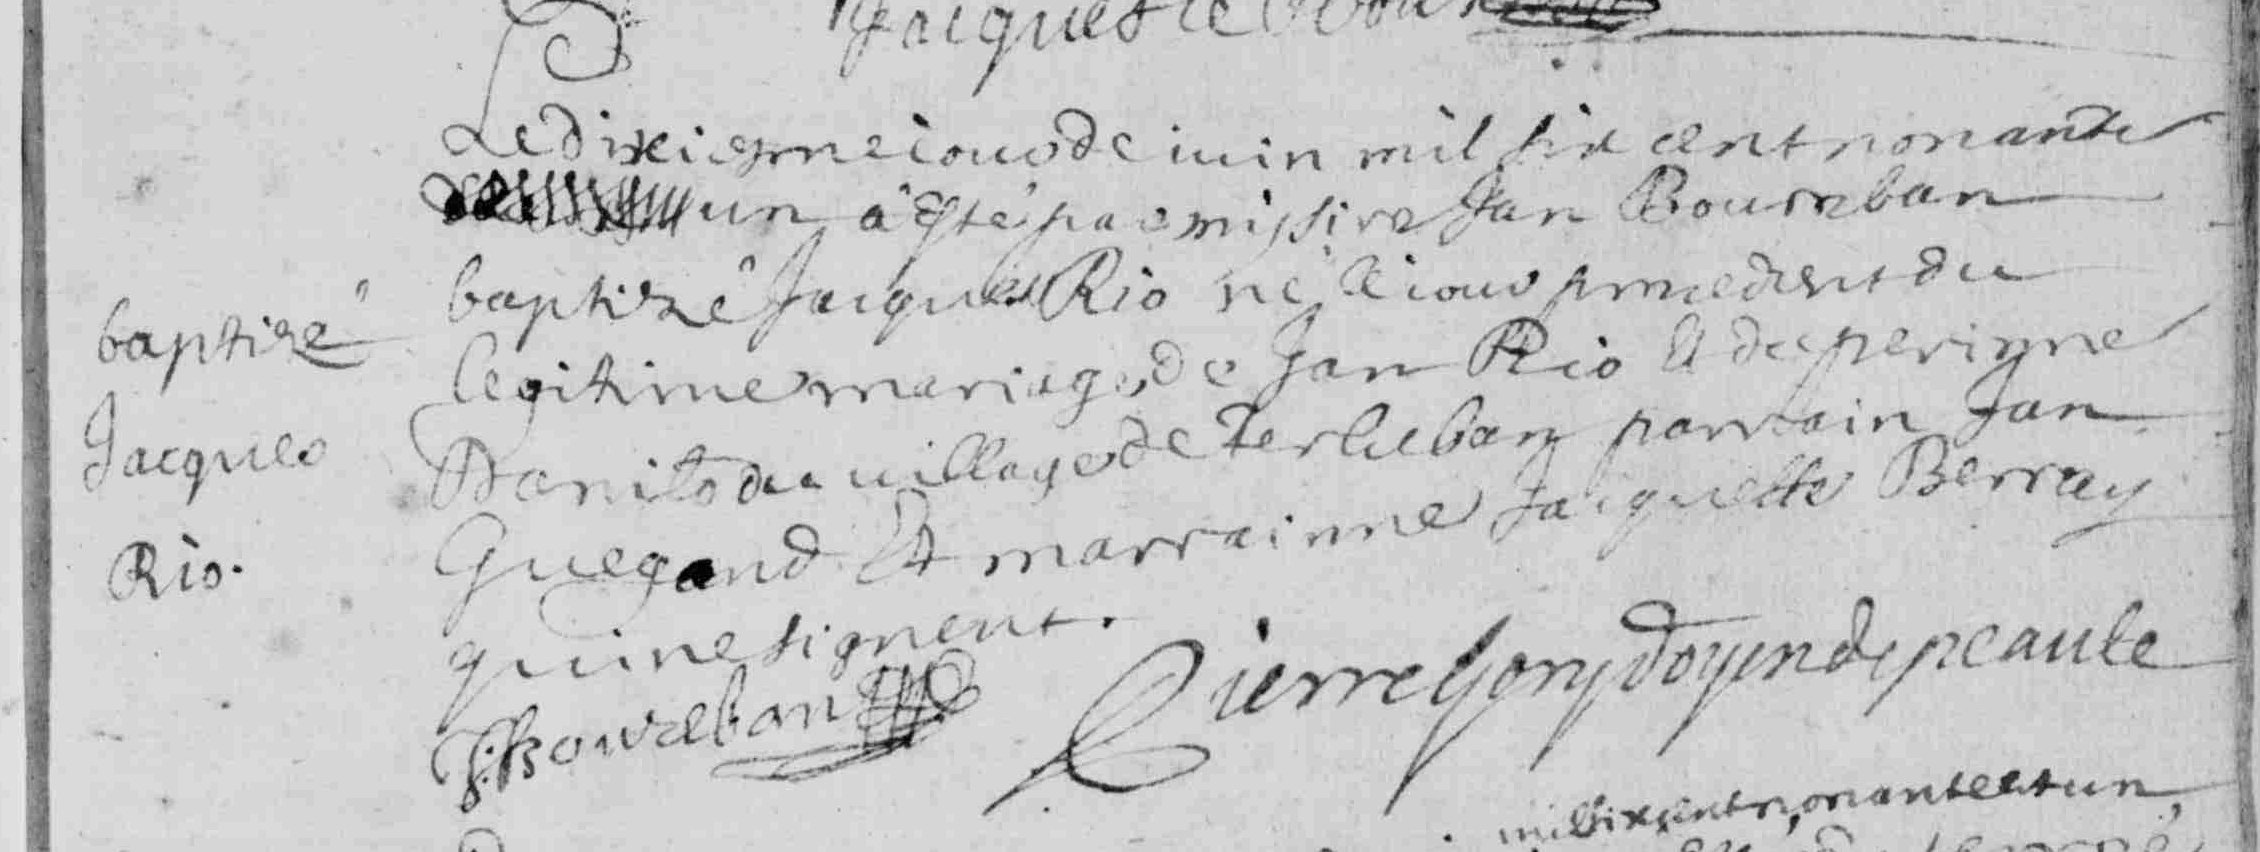 Jacques le
Le dixiesme iour de iuin mil six cent nonante
un a esté par missire Jan Bourban
baptizé Jacques Rio né le iour precedent du
legitime mariage de Jan Rio et de perigne
du village de parrain Jan
Guegand Et marrainne Jacquette Berray
qui ne signent.
baptizé
Jacques
Rio.
J: Bourban
Pierre Gony doyen de peaule
mil six cent nonante et un